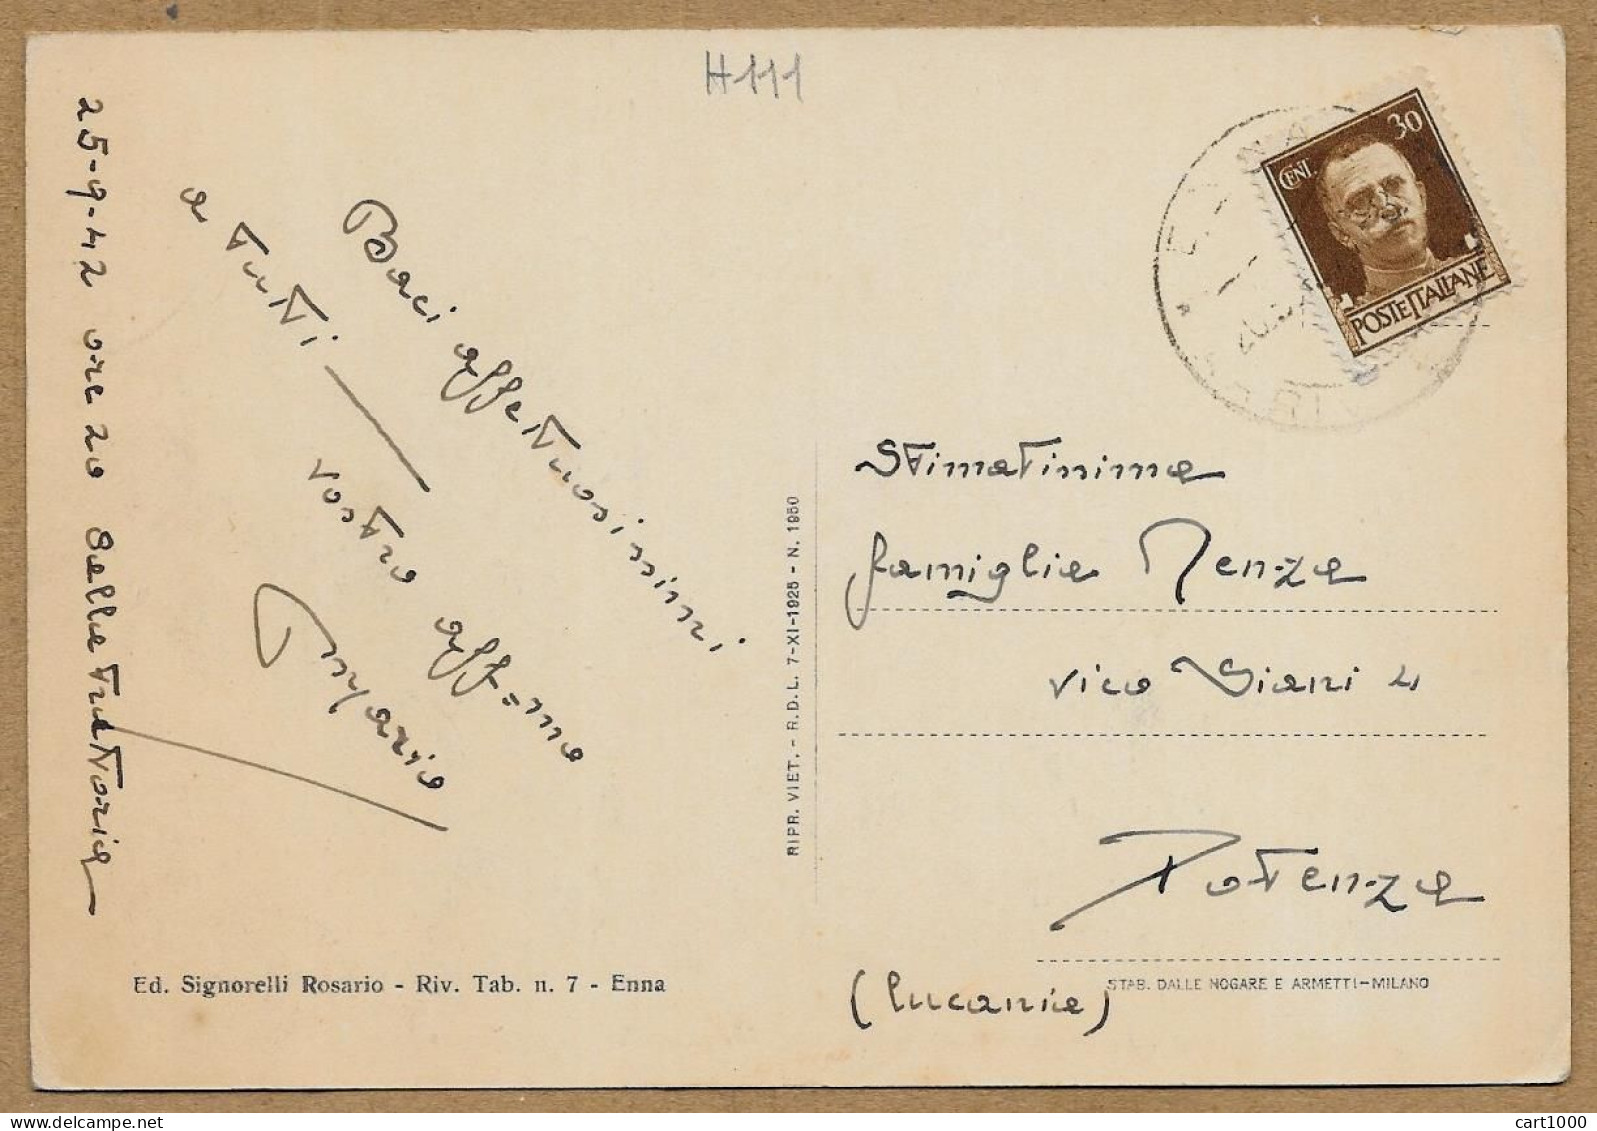 H111
25-9-42 ore 20 dalla trattoria
Baci affettuosissimi
a tutti
vostro aff=mo
CENT. 30
POSTE ITALIANE
ENNA
Stimatissima
famiglia Menza
vico Siani 4
Potenza
(Lucania)
RIPR. VIET. - R.D.L. 7-XI-1925 - N. 1950
Ed. Signorelli Rosario - Riv. Tab. n. 7 - Enna
STAB. DALLE NOGARE E ARMETTI-MILANO
cart1000